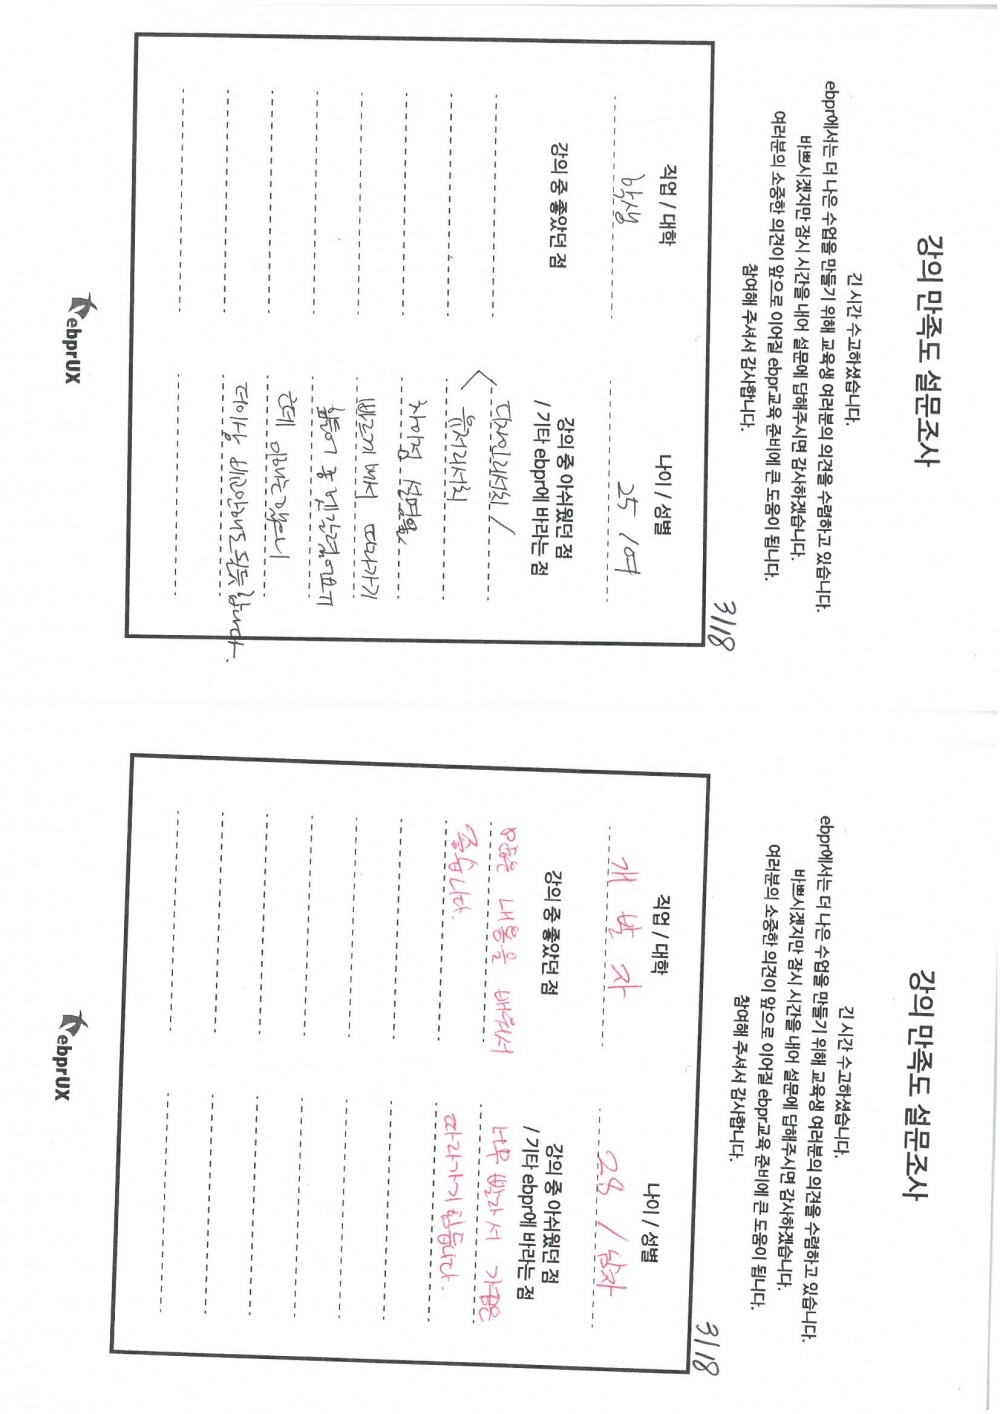 강의 만족도 설문조사
긴 시간 수고하셨습니다.
ebpr에서는 더 나은 수업을 만들기 위해 교육생 여러분의 의견을 수렴하고 있습니다.
바쁘시겠지만 잠시 시간을 내어 설문에 답해주시면 감사하겠습니다.
여러분의 소중한 의견이 앞으로 이어질 ebpr교육 준비에 큰 도움이 됩니다.
참여해 주셔서 감사합니다.
3/18
직업 / 대학
학생
나이 / 성별
25 / 여
강의 중 좋았던 점
강의 중 아쉬웠던 점
/ 기타 ebpr에 바라는 점
디자인리서치 /
유저리서치
차이점 설명을
빠르게 빼서 따라가기
힘들어
근데
더이상 바라만해도 될듯합니다.
ebprUX
강의 만족도 설문조사
긴 시간 수고하셨습니다.
ebpr에서는 더 나은 수업을 만들기 위해 교육생 여러분의 의견을 수렴하고 있습니다.
바쁘시겠지만 잠시 시간을 내어 설문에 답해주시면 감사하겠습니다.
여러분의 소중한 의견이 앞으로 이어질 ebpr교육 준비에 큰 도움이 됩니다.
참여해 주셔서 감사합니다.
3/18
직업 / 대학
개발자
나이 / 성별
28 / 남자
강의 중 좋았던 점
많은 내용을 배워서
좋습니다.
강의 중 아쉬웠던 점
/ 기타 ebpr에 바라는 점
너무 빨라서 가끔은
따라가기 힘듭니다.
ebprUX